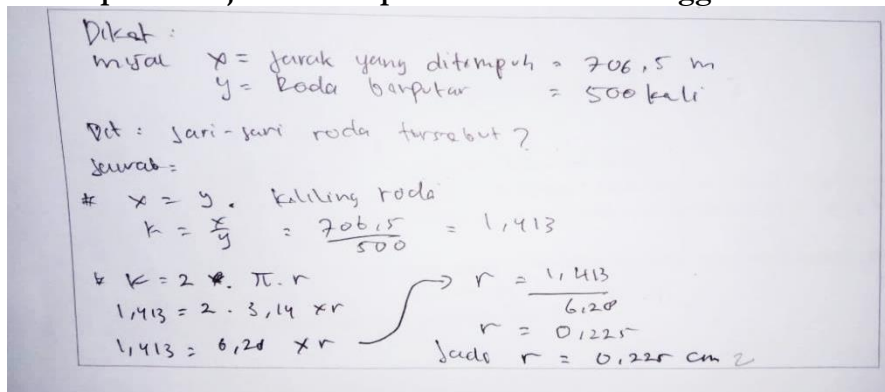 Diket :
misal x = jarak yang ditempuh = 706,5 m
y = Roda berputar = 500 kali
Dit : jari-jari roda tersebut ?
Jawab =
* x = y . keliling roda
k = x/y = 706,5/500 = 1,413
* k = 2 . π . r
1,413 = 2 . 3,14 × r
1,413 = 6,28 × r
r = 1,413/6,28
r = 0,225
Jadi r = 0,225 cm